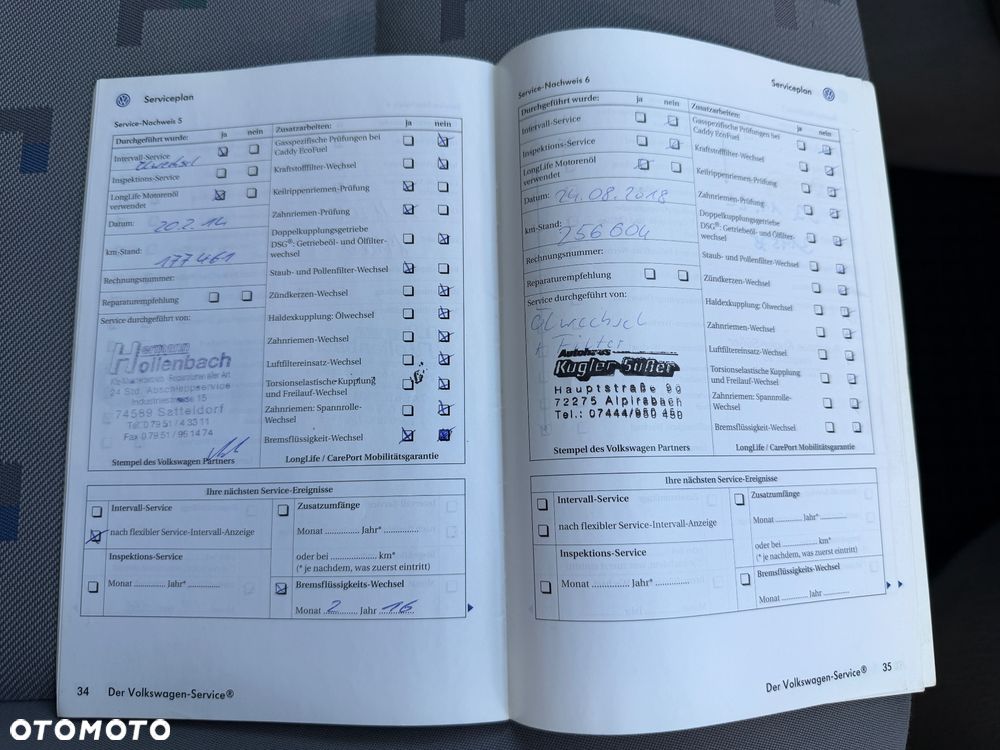 Serviceplan
Service-Nachweis 5
Durchgeführt wurde: ja nein
Intervall-Service
Ölwechsel
Inspektions-Service
LongLife Motorenöl
verwendet
Datum: 20.2.14
km-Stand:
177461
Rechnungsnummer:
Reparaturempfehlung
Service durchgeführt von:
Hermann
Hollenbach
24 Std. Abschleppservice
Industriestraße 15
74589 Satteldorf
Tel. 0 79 51 / 4 33 11
Fax 0 79 51 / 95 14 74
Stempel des Volkswagen Partners
Zusatzarbeiten: ja nein
Gasspezifische Prüfungen bei
Caddy EcoFuel
Kraftstofffilter-Wechsel
Keilrippenriemen-Prüfung
Zahnriemen-Prüfung
Doppelkupplungsgetriebe
DSG®: Getriebeöl- und Ölfilter-
wechsel
Staub- und Pollenfilter-Wechsel
Zündkerzen-Wechsel
Haldexkupplung: Ölwechsel
Zahnriemen-Wechsel
Luftfiltereinsatz-Wechsel
Torsionselastische Kupplung
und Freilauf-Wechsel
Zahnriemen: Spannrolle-
Wechsel
Bremsflüssigkeit-Wechsel
LongLife / CarePort Mobilitätsgarantie
Ihre nächsten Service-Ereignisse
Intervall-Service
nach flexibler Service-Intervall-Anzeige
Inspektions-Service
Monat .............. Jahr* ..............
Zusatzumfänge
Monat .............. Jahr* ..............
oder bei .................... km*
(* je nachdem, was zuerst eintritt)
Bremsflüssigkeits-Wechsel
Monat 2 Jahr 16
34 Der Volkswagen-Service®
Serviceplan
Service-Nachweis 6
Durchgeführt wurde: ja nein
Intervall-Service
Inspektions-Service
LongLife Motorenöl
verwendet
Datum: 24.08.2018
km-Stand:
256604
Rechnungsnummer:
Reparaturempfehlung
Service durchgeführt von:
Ölwechsel
+ Filter
Autohaus
Kugler Süßer
Hauptstraße 90
72275 Alpirsbach
Tel.: 07444/960 450
Stempel des Volkswagen Partners
Zusatzarbeiten: ja nein
Gasspezifische Prüfungen bei
Caddy EcoFuel
Kraftstofffilter-Wechsel
Keilrippenriemen-Prüfung
Zahnriemen-Prüfung
Doppelkupplungsgetriebe
DSG®: Getriebeöl- und Ölfilter-
wechsel
Staub- und Pollenfilter-Wechsel
Zündkerzen-Wechsel
Haldexkupplung: Ölwechsel
Zahnriemen-Wechsel
Luftfiltereinsatz-Wechsel
Torsionselastische Kupplung
und Freilauf-Wechsel
Zahnriemen: Spannrolle-
Wechsel
Bremsflüssigkeit-Wechsel
LongLife / CarePort Mobilitätsgarantie
Ihre nächsten Service-Ereignisse
Intervall-Service
nach flexibler Service-Intervall-Anzeige
Inspektions-Service
Monat .............. Jahr* ..............
Zusatzumfänge
Monat .............. Jahr* ..............
oder bei .................... km*
(* je nachdem, was zuerst eintritt)
Bremsflüssigkeits-Wechsel
Monat .............. Jahr ..............
Der Volkswagen-Service® 35
OTOMOTO